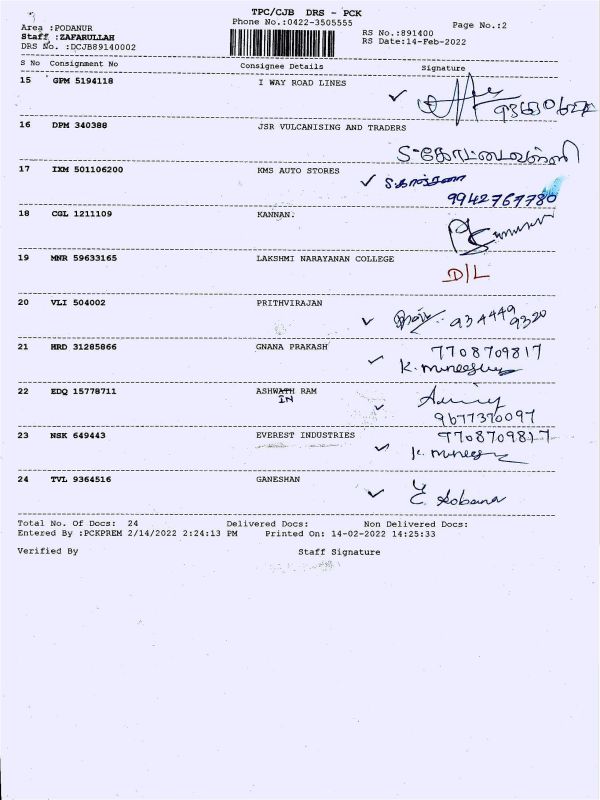 TPC/CJB DRS - PCK
Area :PODANUR
Phone No.:0422-3505555
Page No.:2
Staff :ZAFARULLAH
RS No.:891400
DRS No. :DCJB89140002
RS Date:14-Feb-2022
S No Consignment No Consignee Details Signature
15 GPM 5194118 I WAY ROAD LINES
16 DPM 340388 JSR VULCANISING AND TRADERS
17 IXM 501106200 KMS AUTO STORES
9942767780
18 CGL 1211109 KANNAN.
19 MNR 59633165 LAKSHMI NARAYANAN COLLEGE
D/L
20 VLI 504002 PRITHVIRAJAN
934449
9320
21 HRD 31285866 GNANA PRAKASH 7708709817
22 EDQ 15778711 ASHWATH RAM
IN
9677370097
23 NSK 649443 EVEREST INDUSTRIES 7708709817
24 TVL 9364516 GANESHAN
E. Sobana
Total No. Of Docs: 24 Delivered Docs: Non Delivered Docs:
Entered By :PCKPREM 2/14/2022 2:24:13 PM Printed On: 14-02-2022 14:25:33
Verified By Staff Signature